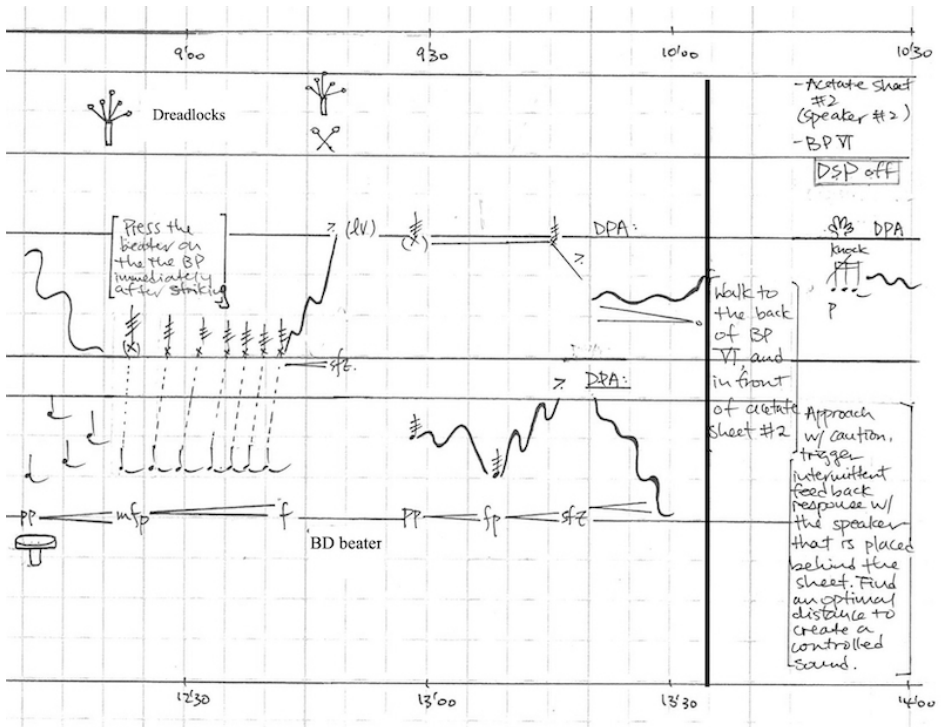 9'00 9'30 10'00 10'30
Dreadlocks
- Acetate sheet
#2
(speaker #2)
- BP VI
DSP off
[Press the
beater on
the the BP
immediately
after striking]
(lv)
DPA:
DPA
knock
p
(x)
(x)
sfz.
DPA:
[Walk to
the back
of BP
VI, and
in front
of acetate
sheet #2]
[Approach
w/ caution,
trigger
intermittent
feedback
response w/
the speaker
that is placed
behind the
sheet. Find
an optimal
distance to
create a
controlled
sound.]
pp mfp f pp fp sfz
BD beater
12'30 13'00 13'30 14'00